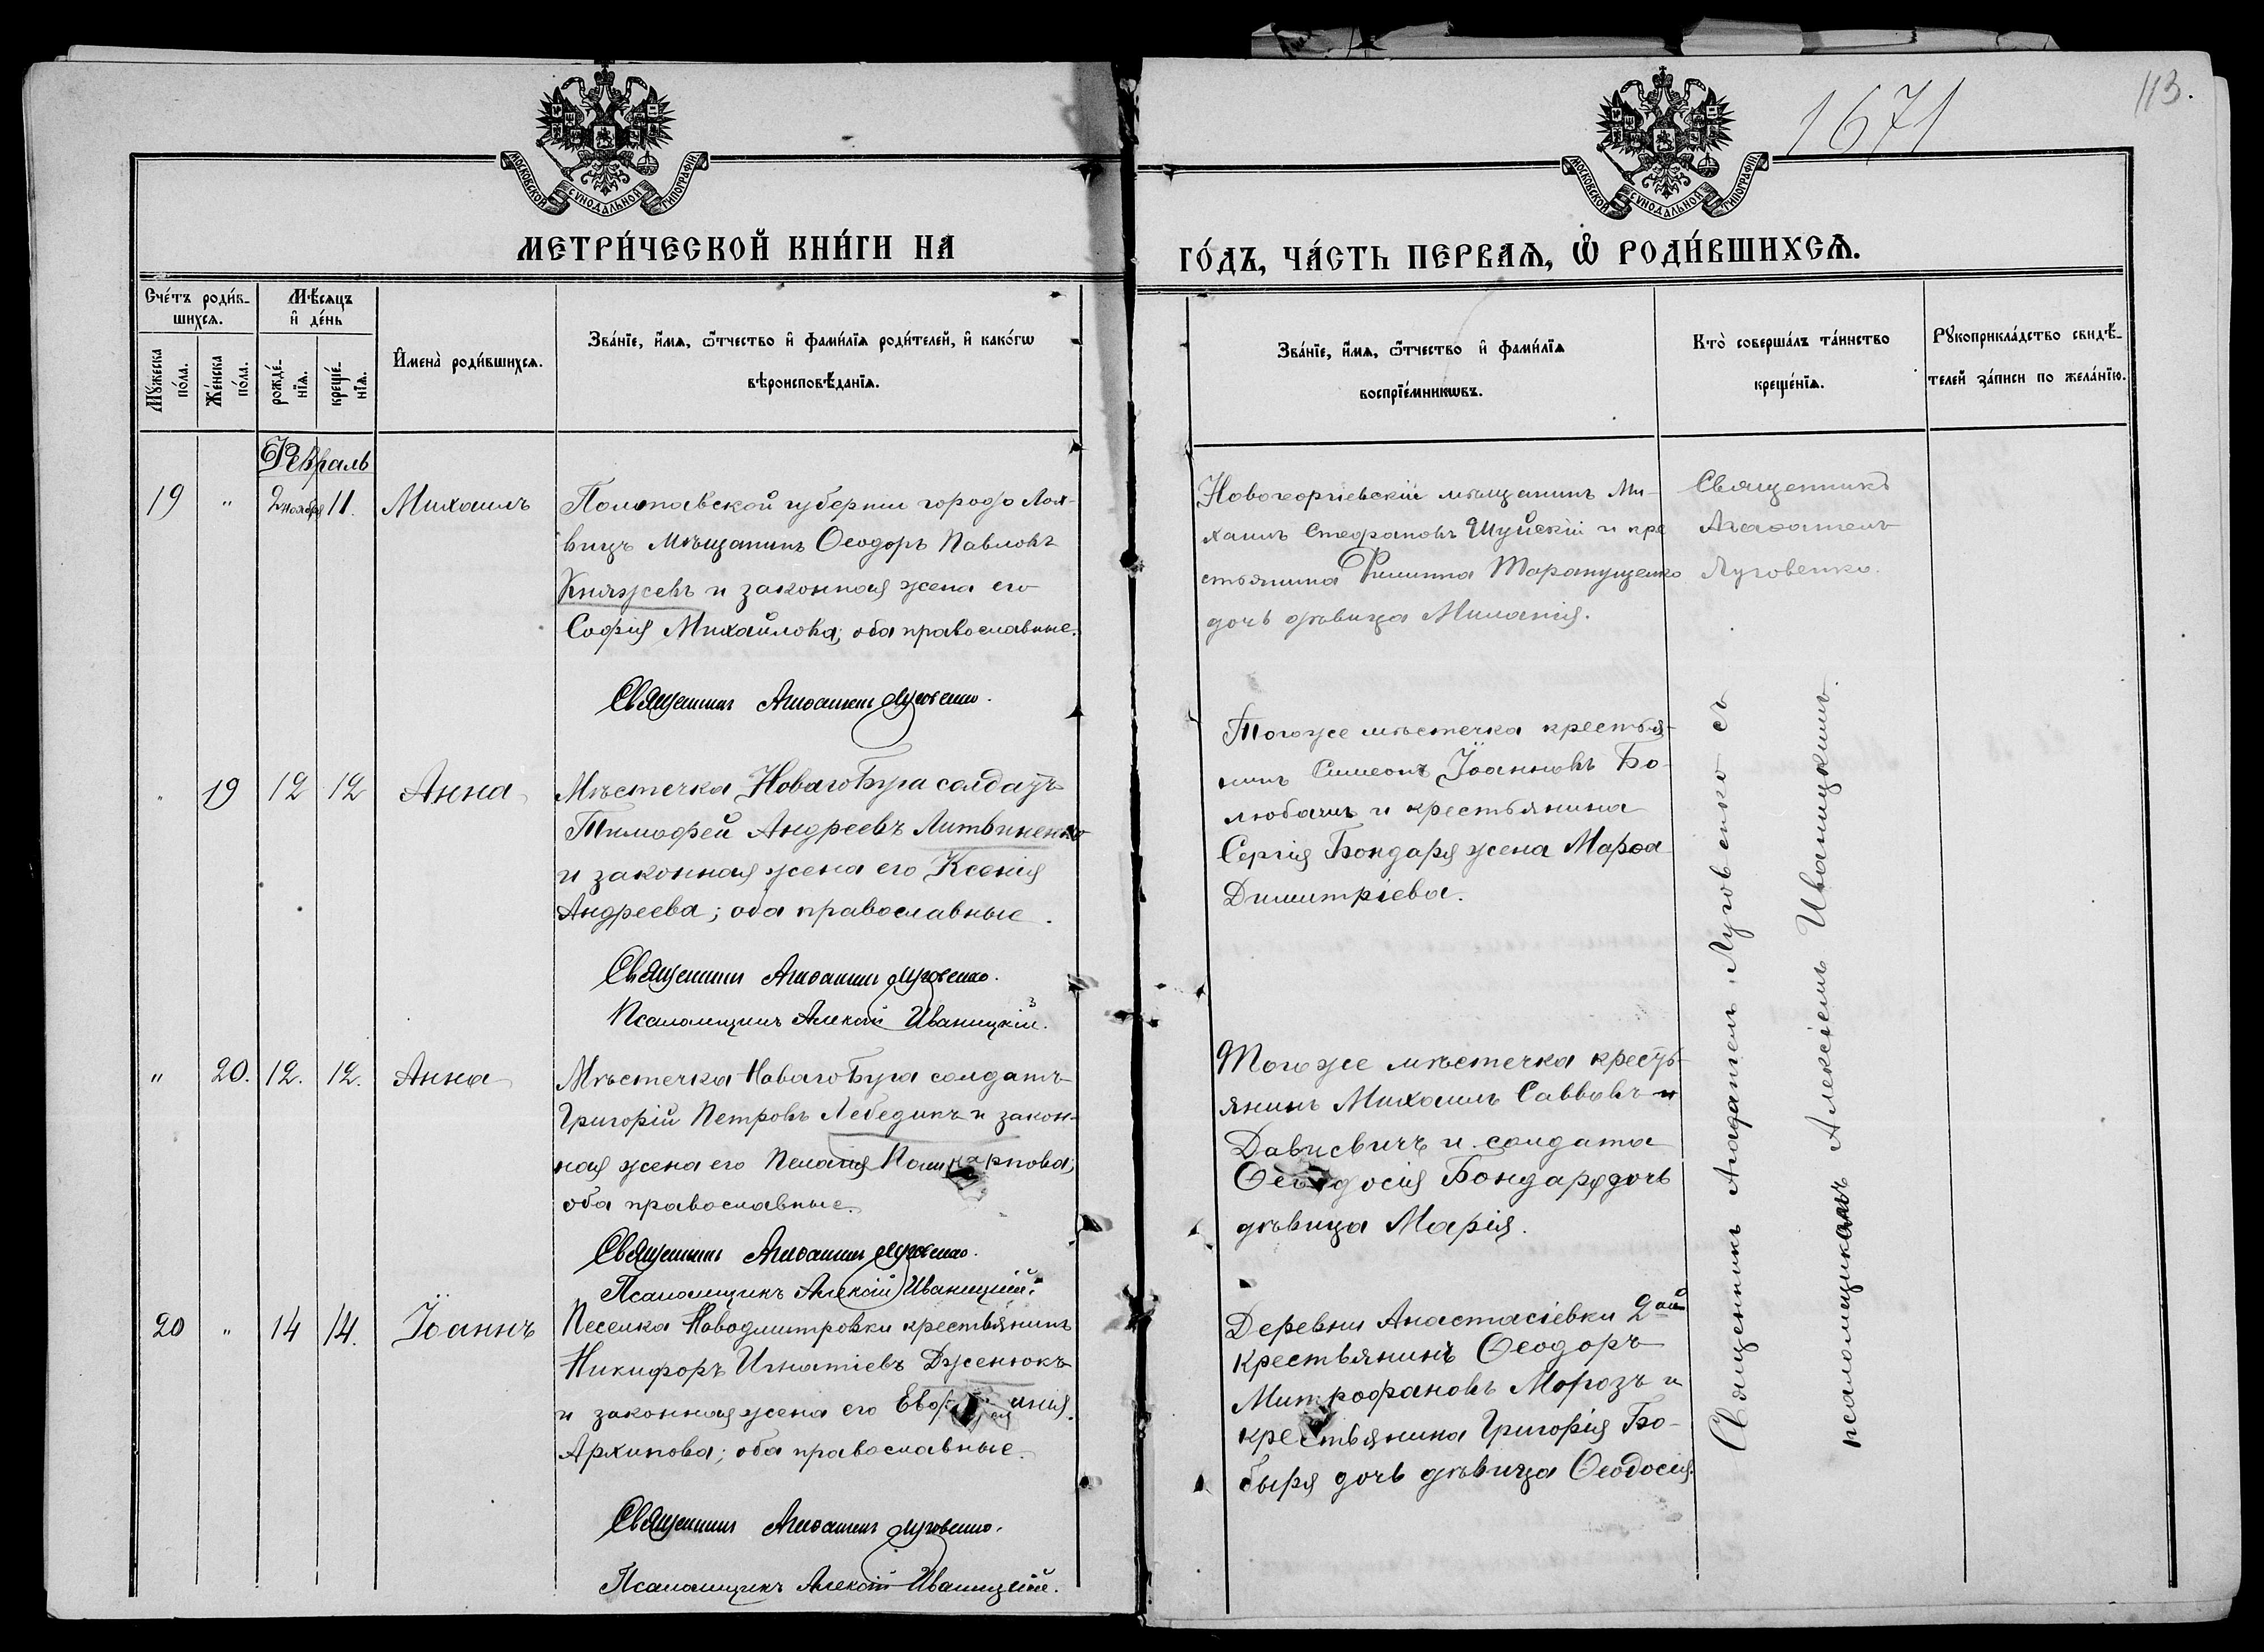 113.
1671
МОСКОВСКОЙ СѴНОДАЛЬНОЙ ТИПОГРАФІИ
МОСКОВСКОЙ СѴНОДАЛЬНОЙ ТИПОГРАФІИ
МЕТРИ́ЧЕСКОЙ КНИ́ГИ НА
ГО́ДЪ, ЧА́СТЬ ПЕРВАѦ, Ѽ РОДИ́ВШИХСѦ.
Сче́тъ роди́в-
шихсѧ.
Мꙋжеска
по́ла.
Же́нска
по́ла.
Мѣ́сѧцъ
и҆ де́нь
рожде́-
нїѧ.
креще́-
нїѧ.
И҆мена̀ роди́вшихсѧ.
Зва́нїе, и҆́мѧ, ѻ҆́тчество и҆ фами́лїѧ роди́телей, и҆ како́гѡ
вѣроисповѣ́данїѧ.
Зва́нїе, и҆́мѧ, ѻ҆́тчество и҆ фами́лїѧ
воспрїе́мникѡвъ.
Кто̀ соверша́лъ та́инство
креще́нїѧ.
Рꙋкоприкла́дство свидѣ́-
телей за́писи по жела́нїю.
Февраль
19 " 2 ноября 11. Михаилъ
Полтавской губерніи города Лох-
вицъ мѣщанинъ Ѳеодоръ Павловъ
Княжевъ и законная жена его
Софія Михайлова; оба православные.
Священникъ Агаѳангелъ Луговенко.
Новогеоргіевскій мѣщанинъ Ми-
хаилъ Стефановъ Шуйскій и кре
стьянина Филиппа Таранущенко
дочь дѣвица Миланія.
Священникъ
Агаѳангелъ
Луговенко.
" 19 12 12 Анна
Мѣстечка Новаго Буга солдатъ
Тимофей Андреевъ Литвиненко
и законная жена его Ксенія
Андреева; оба православные.
Священникъ Агаѳангелъ Луговенко.
Псаломщикъ Алексій Иваницкій.
Тогоже мѣстечка крестья-
нинъ Симеонъ Іоанновъ Бо-
любашъ и крестьянина
Сергія Бондаря жена Марѳа
Димитріева.
" 20. 12. 12. Анна
Мѣстечка Новаго Буга солдатъ
Григорій Петровъ Лебединъ и закон-
ная жена его Пелагія Поликарпова;
оба православные.
Священникъ Агаѳангелъ Луговенко.
Псаломщикъ Алексій Иваницкій.
Тогоже мѣстечка кресть-
янинъ Михаилъ Саввовъ
и солдата
Ѳеодосія Бондаря дочь
дѣвица Марія.
20 " 14 14. Іоаннъ
Поселка Новодмитровки крестьянинъ
Никифоръ Игнатіевъ Дженюкъ
и законная жена его
Архипова; оба православные.
Священникъ Агаѳангелъ Луговенко.
Псаломщикъ Алексій Иваницкій.
Деревни Анастасіевки 2ой
крестьянинъ Ѳеодоръ
Митрофановъ Морозъ и
крестьянина Григорія Бо-
быря дочь дѣвица Ѳеодосія.
Священникъ Агаѳангелъ Луговенко съ
псаломщикомъ Алексіемъ Иваницкимъ.